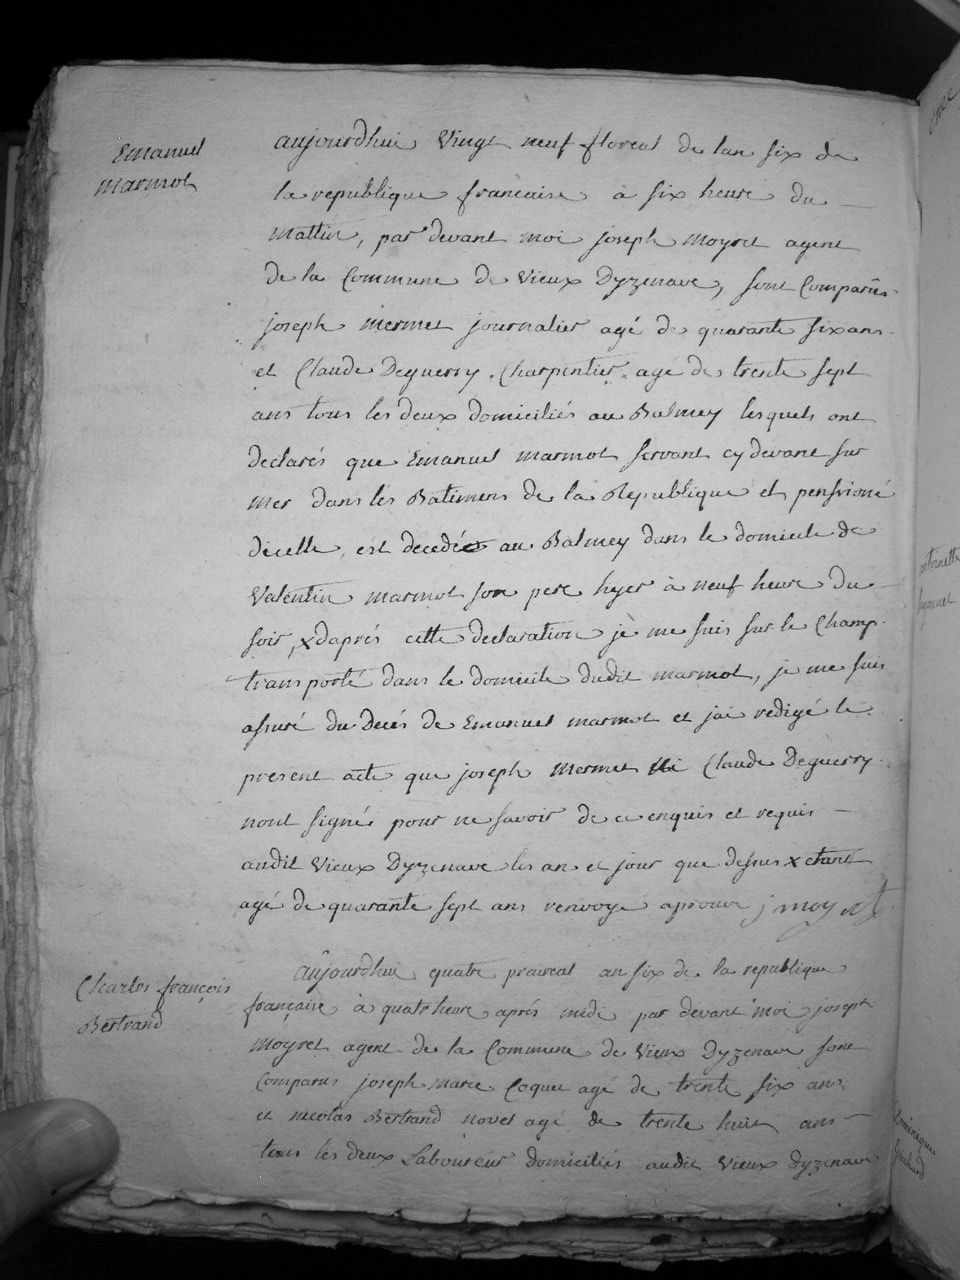 Emanuel
marmot
aujourdhui Vingt neuf floreal de lan six de
la republique francaise à six heure du
mattin, par devant moi joseph moyret agent
de la Commune de Vieux Dyzenave, sont Comparûs
joseph mermet journalier agé de quarante six ans
et Claude Deguerry Charpentier agé de trente sept
ans tous les deux domiciliés au Balmey lesquels ont
declarés que Emanuel marmot servant cy devant sur
mer dans les Batimens de la Republique et pensioné
dicelle est decedé au Balmey dans le domicile de
Valentin marmot son pere hyer à neuf heure du
soir, x daprés cette declaration je me suis sur le Champ
transporté dans le domicile dudit marmot, je me suis
assuré du Decés de Emanuel marmot et jai redigé le
present acte que joseph mermet Claude Deguerry
nont signé pour ne savoir de ce enquis et requis
audit Vieux Dyzenave les an et jour que dessus x etant
agé de quarante sept ans renvoye aprouvé j moyret
Charles françois
Bertrand
aujourdhui quatre praireal an six de la republique
française à quatr heure aprés midi par devant moi joseph
moyret agent de la Commune de Vieux Dyzenave sont
Comparus joseph marie Coquet agé de trente six ans
et nicolas Bertrand novel agé de trente huit ans
tous les deux Laboureur domiciliés audit Vieux Dyzenave
antoinette
Dominique